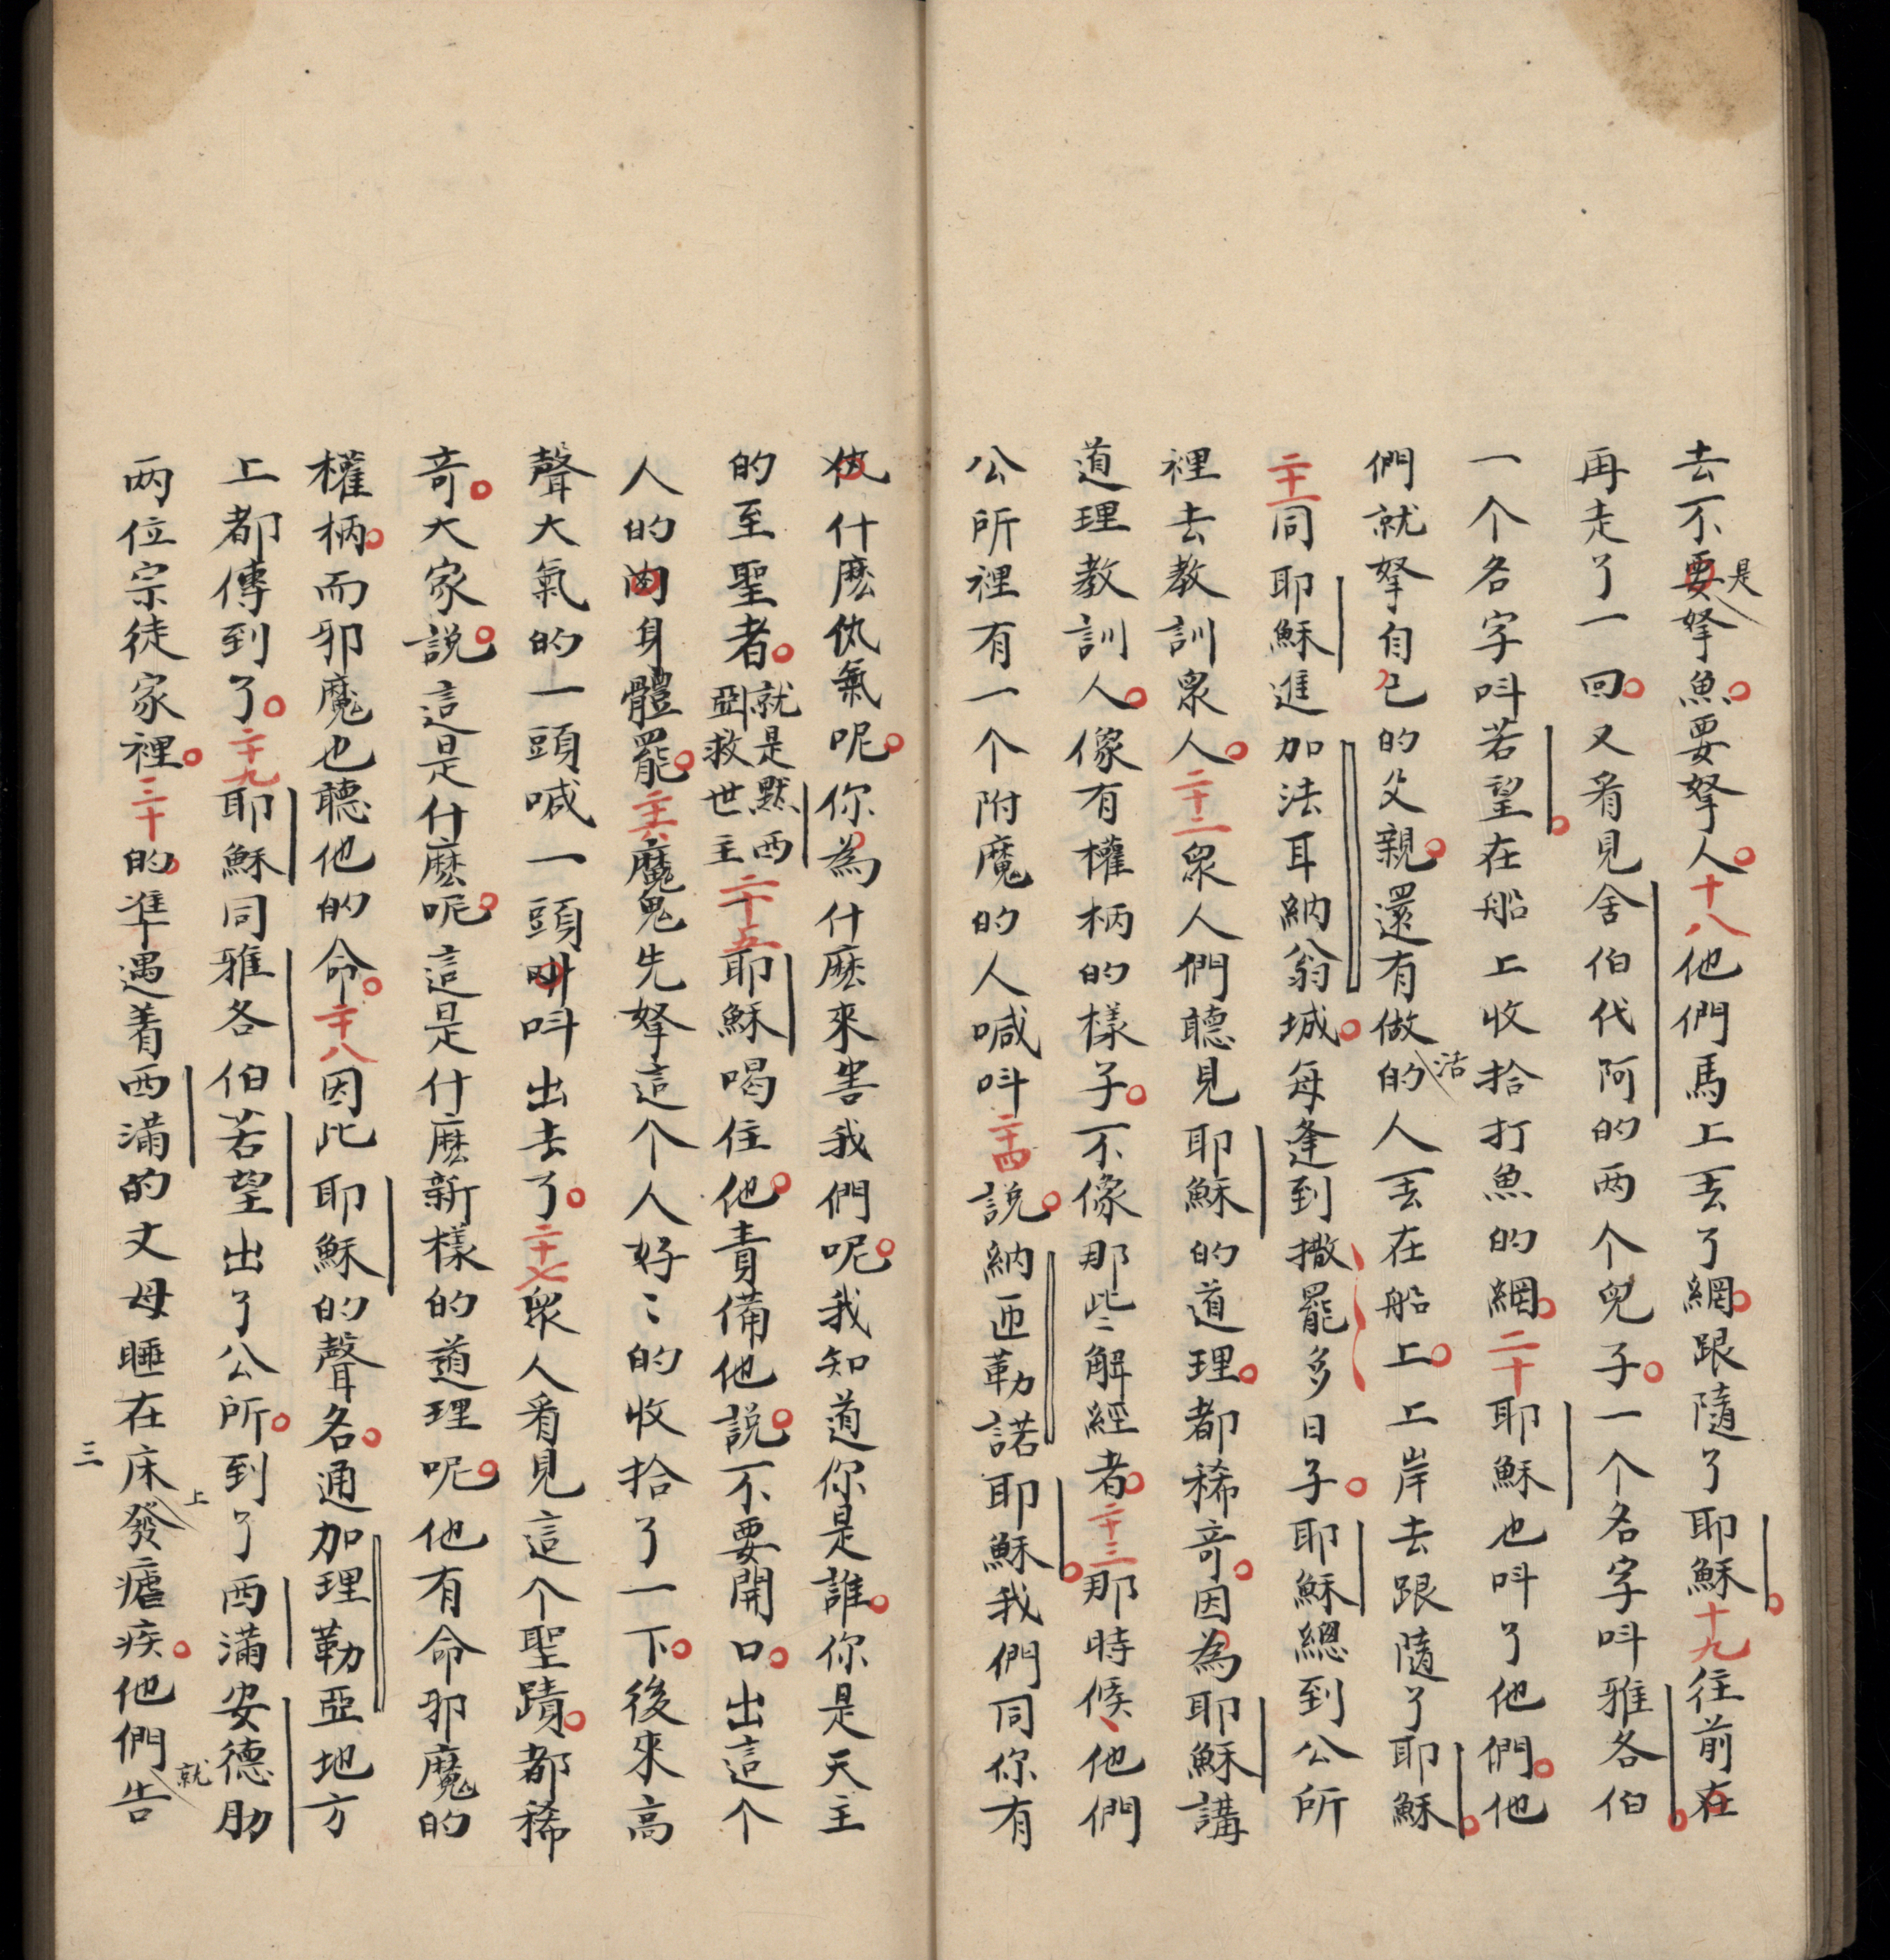 去不要是拏魚要拏人十八他們馬上丟了網跟隨了耶穌十九往前在
再走了一回又看見舍伯代阿的两个兒子一个名字呌雅各伯
一个名字呌若望在船上收拾打魚的網二十耶穌也呌了他們他
們就拏自己的父親還有做活的人丟在船上上岸去跟隨了耶穌
二十一同耶穌進加法耳納翁城每逢到撒罷多日子耶穌總到公所
裡去教訓眾人二十二眾人們聽見耶穌的道理都稀竒因為耶穌講
道理教訓人像有權柄的樣子不像那些〻解經者二十三那時候他們
公所裡有一个附魔的人喊呌二十四説納匝勒諾耶穌我們同你有
什麽仇氣呢你為什麽來害我們呢我知道你是誰你是天主
的至聖者就是黙西亞救世主二十五耶穌喝住他責備他説不要開口出這个
人的肉身體罷二十六魔鬼先拏這个人好〻的收拾了一下後來高
聲大氣的一頭喊一頭呌出去了二十七眾人看見這个聖蹟都稀
竒大家説這是什麽呢這是什麽新樣的道理呢他有命邪魔的
權柄而邪魔也聽他的命二十八因此耶穌的聲名通加理勒亞地方
上都傳到了二十九耶穌同雅各伯若望出了公所到了西滿安德肋
两位宗徒家裡三十的準遇着西滿的丈母睡在床上發瘧疾他們就告
三